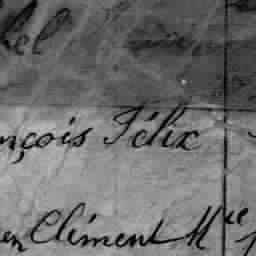 hel
nçois Félix
en Clément Mre